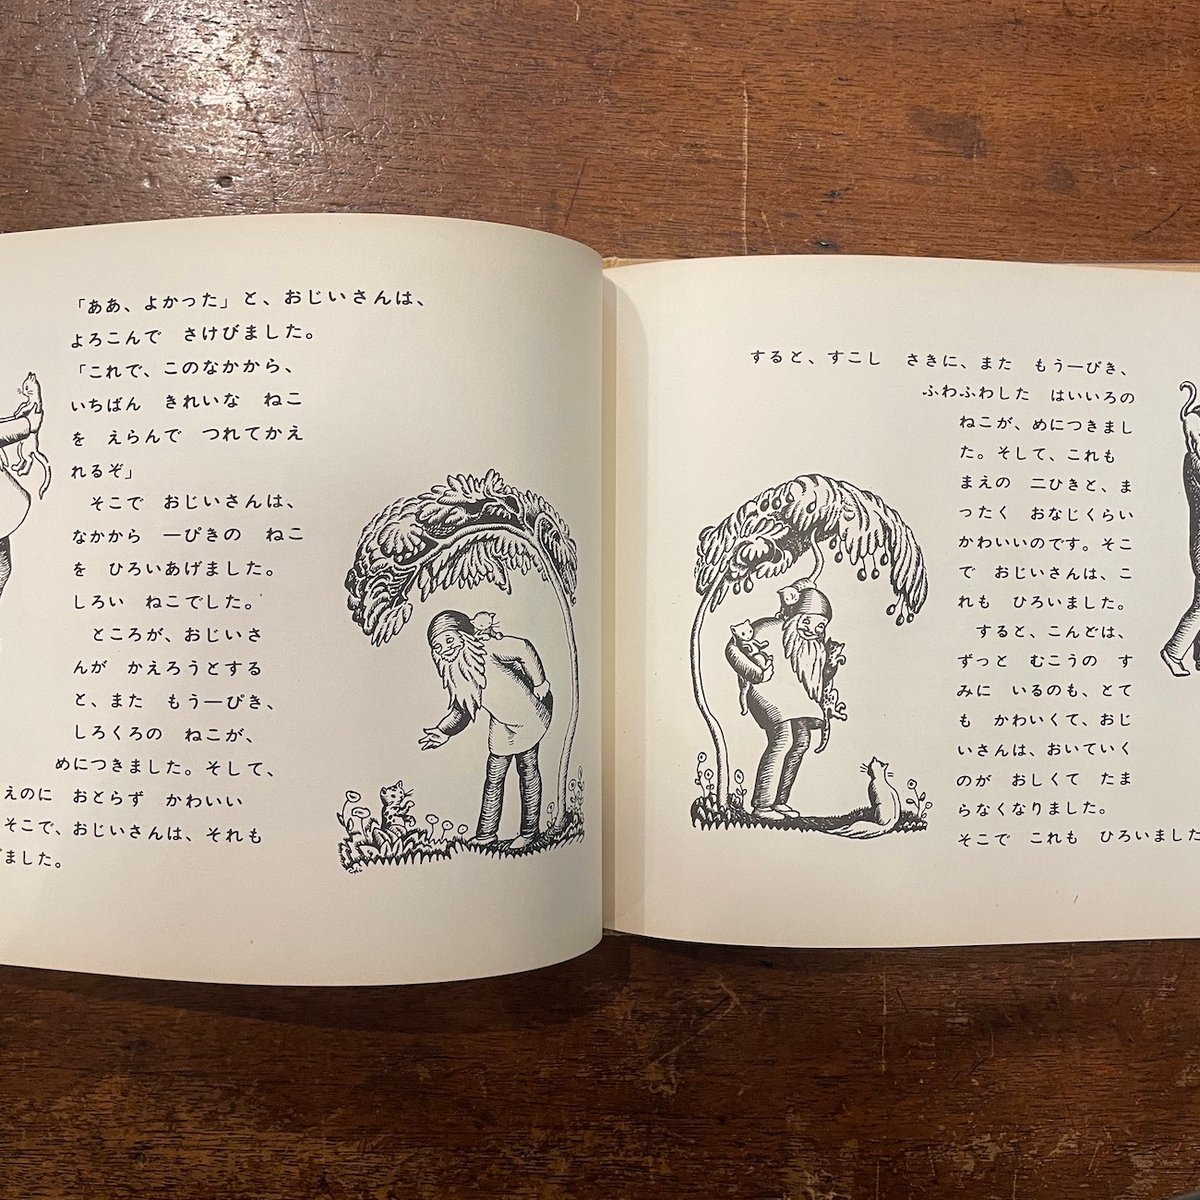 「ああ、よかった」と、おじいさんは、
よろこんで　さけびました。
「これで、このなかから、
いちばん　きれいな　ねこ
を　えらんで　つれてかえ
れるぞ」
　そこで　おじいさんは、
なかから　一ぴきの　ねこ
を　ひろいあげました。
しろい　ねこでした。
　ところが、おじいさ
んが　かえろうとする
と、また　もう一ぴき、
しろくろの　ねこが、
めにつきました。そして、
えのに　おとらず　かわいい
そこで、おじいさんは、それも
ました。
すると、すこし　さきに、また　もう一ぴき、
ふわふわした　はいいろの
ねこが、めにつきまし
た。そして、これも
まえの　二ひきと、ま
ったく　おなじくらい
かわいいのです。そこ
で　おじいさんは、こ
れも　ひろいました。
　すると、こんどは、
ずっと　むこうの　す
みに　いるのも、とて
も　かわいくて、おじ
いさんは、おいていく
のが　おしくて　たま
らなくなりました。
そこで　これも　ひろいました